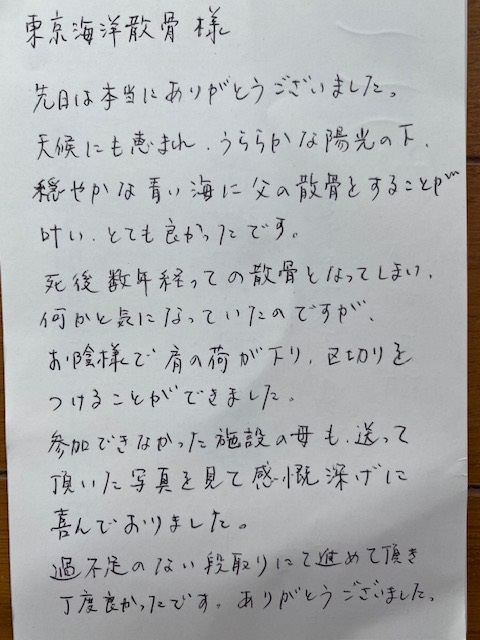 東京海洋散骨 様
先日は本当にありがとうございました。
天候にも恵まれ、うららかな陽光の下、
穏やかな青い海に父の散骨をすることが
叶い、とても良かったです。
死後数年経っての散骨となってしまい、
何かと気になっていたのですが、
お陰様で肩の荷が下り、区切りを
つけることができました。
参加できなかった施設の母も、送って
頂いた写真を見て感慨深げに
喜んでおりました。
過不足のない段取りにて進めて頂き
丁度良かったです。ありがとうございました。